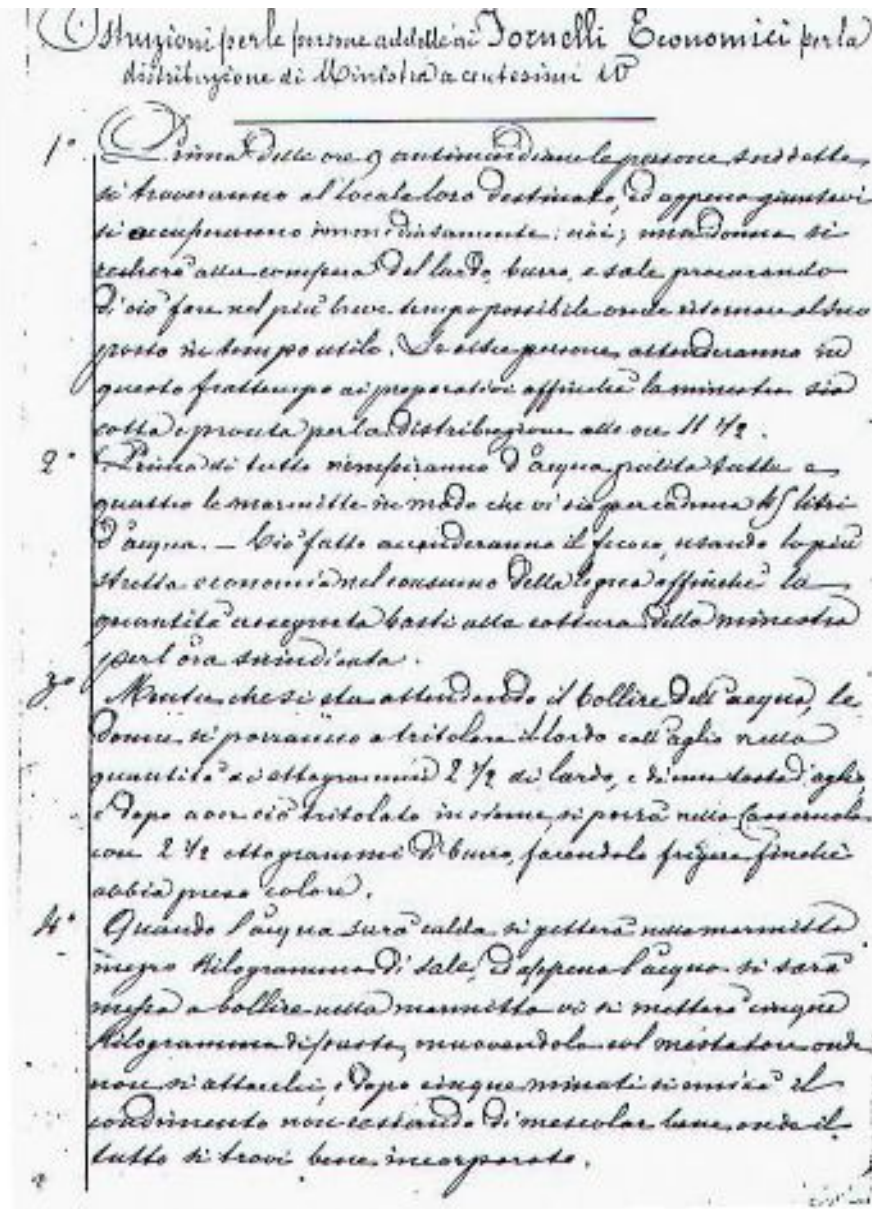 Istruzioni per le persone addette ai Fornelli Economici per la
distribuzione di Minestra a centesimi 10
1° Prima delle ore 9 antimeridiane le persone suddette
si troveranno al locale loro destinato, ed appena giuntevi
si occuperanno immediatamente: cioè; una donna si
recherà alla compera del lardo, burro, e sale procurando
di ciò fare nel più breve tempo possibile onde ritornare al suo
posto in tempo utile. Le altre persone attenderanno in
questo frattempo ai preparativi affinchè la minestra sia
cotta e pronta per la distribuzione alle ore 11 1/2.
2° Prima di tutto riempiranno d'acqua pulita tutte e
quattro le marmitte in modo che vi sia per cadauna 45 litri
d'acqua. — Ciò fatto accenderanno il fuoco, usando la più
stretta economia nel consumo della legna affinchè la
quantità assegnata basti alla cottura della minestra
per l'ora suindicata.
3° Mentre che si sta attendendo il bollire dell'acqua, le
donne si porranno a tritolare il lardo coll'aglio nella
quantità di ettogrammi 2 1/2 di lardo, e di una testa d'aglio,
e dopo aver ciò tritolato insieme si porrà nella Casseruola
con 2 1/2 ettogrammi di burro, facendolo friggere finchè
abbia preso colore.
4° Quando l'acqua sarà calda si getterà nella marmitta
mezzo Kilogramma di sale, ed appena l'acqua si sarà
messa a bollire nella marmitta vi si metterà cinque
Kilogramma di pasta, muovendola col mestatore onde
non si attacchi, e dopo cinque minuti si unirà il
condimento non cessando di mescolar bene onde il
tutto si trovi bene incorporato.